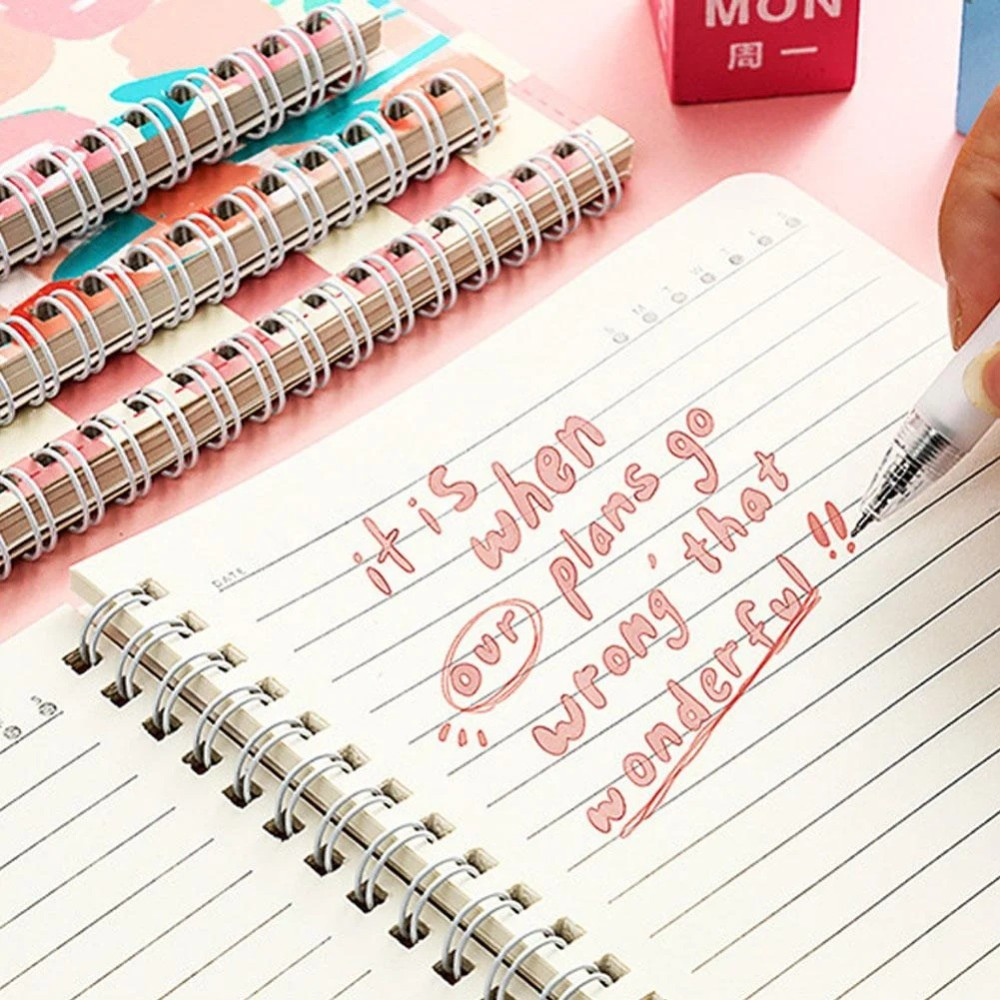 MON
周一
S M T W T F S
DATE
it is when
our plans go
wrong, that
wonderful!!